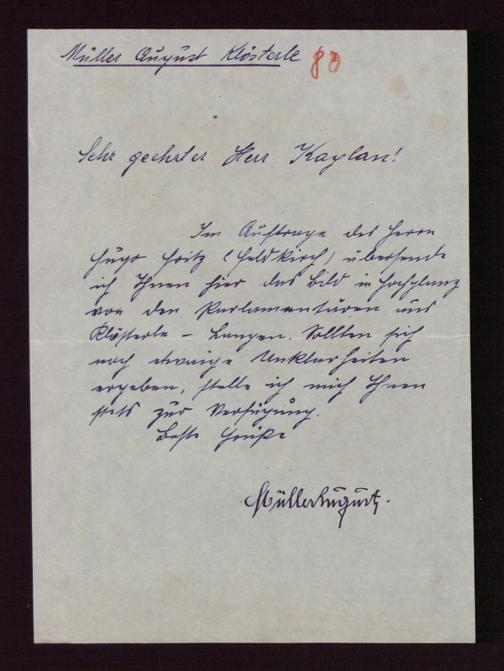 Müller August Klösterle 80
Sehr geehrter Herr Kaplan!
Im Auftrage des Herrn
Hugo Fritz (Feldkirch) übersende
ich Ihnen hier das Bild in Hochglanz
von den Parlamentären aus
Klösterle – Langen. Sollten sich
noch etwaige Unklarheiten
ergeben, stelle ich mich Ihnen
stets zur Verfügung.
Beste Grüße
Müller August.